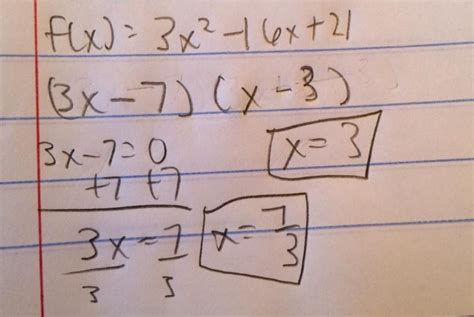 f(x) = 3x² - 16x + 21
(3x - 7) (x - 3)
3x - 7 = 0
+7 +7
x = 3
3x = 7
3 3
x = 7/3